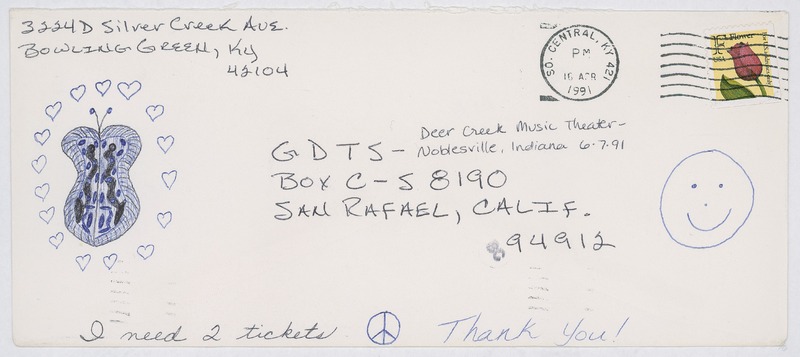 3224D Silver Creek Ave.
Bowling Green, Ky
42104
SO. CENTRAL, KY 421
PM
16 APR
1991
Flower
USA
Deer Creek Music Theater-
Noblesville, Indiana 6-7-91
GDTS-
Box C-S 8190
San Rafael, Calif.
94912
I need 2 tickets
Thank You!